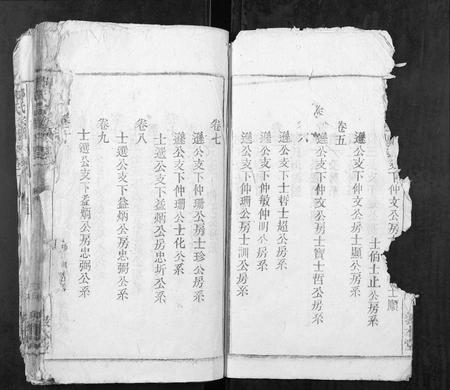 下仲文公房
士順
士伯士止公房系
遜公支下仲文公房士顯公房系
卷五
遜公支下仲文公房士寶士哲公房系
六
遜公支下士哲士超公房系
遜公支下仲敏仲明公房系
遜公支下仲珊公房士訓公房系
卷七
遜公支下仲珊公房士珍公房系
遜公支下仲珊公士化公系
士遜公支下益炳公房忠炘公系
卷八
士遜公支下益炳公房忠弼公系
卷九
士遜公支下益炳公房忠弼公系